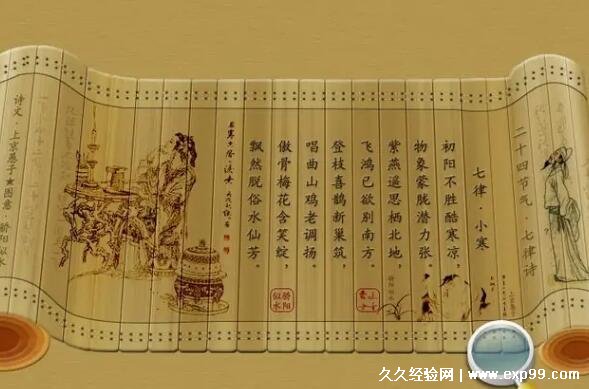 二十四节气·七律诗
七律·小寒
初阳不胜酷寒凉，
物象蒙胧潜力张。
紫燕遥思栖北地，
飞鸿已欲别南方。
登枝喜鹊新巢筑，
唱曲山鸡老调扬。
傲骨梅花含笑绽，
飘然脱俗水仙芳。
骄阳似水
诗文·上京愚子
图意·骄阳似水
久久经验网：www.exp99.com